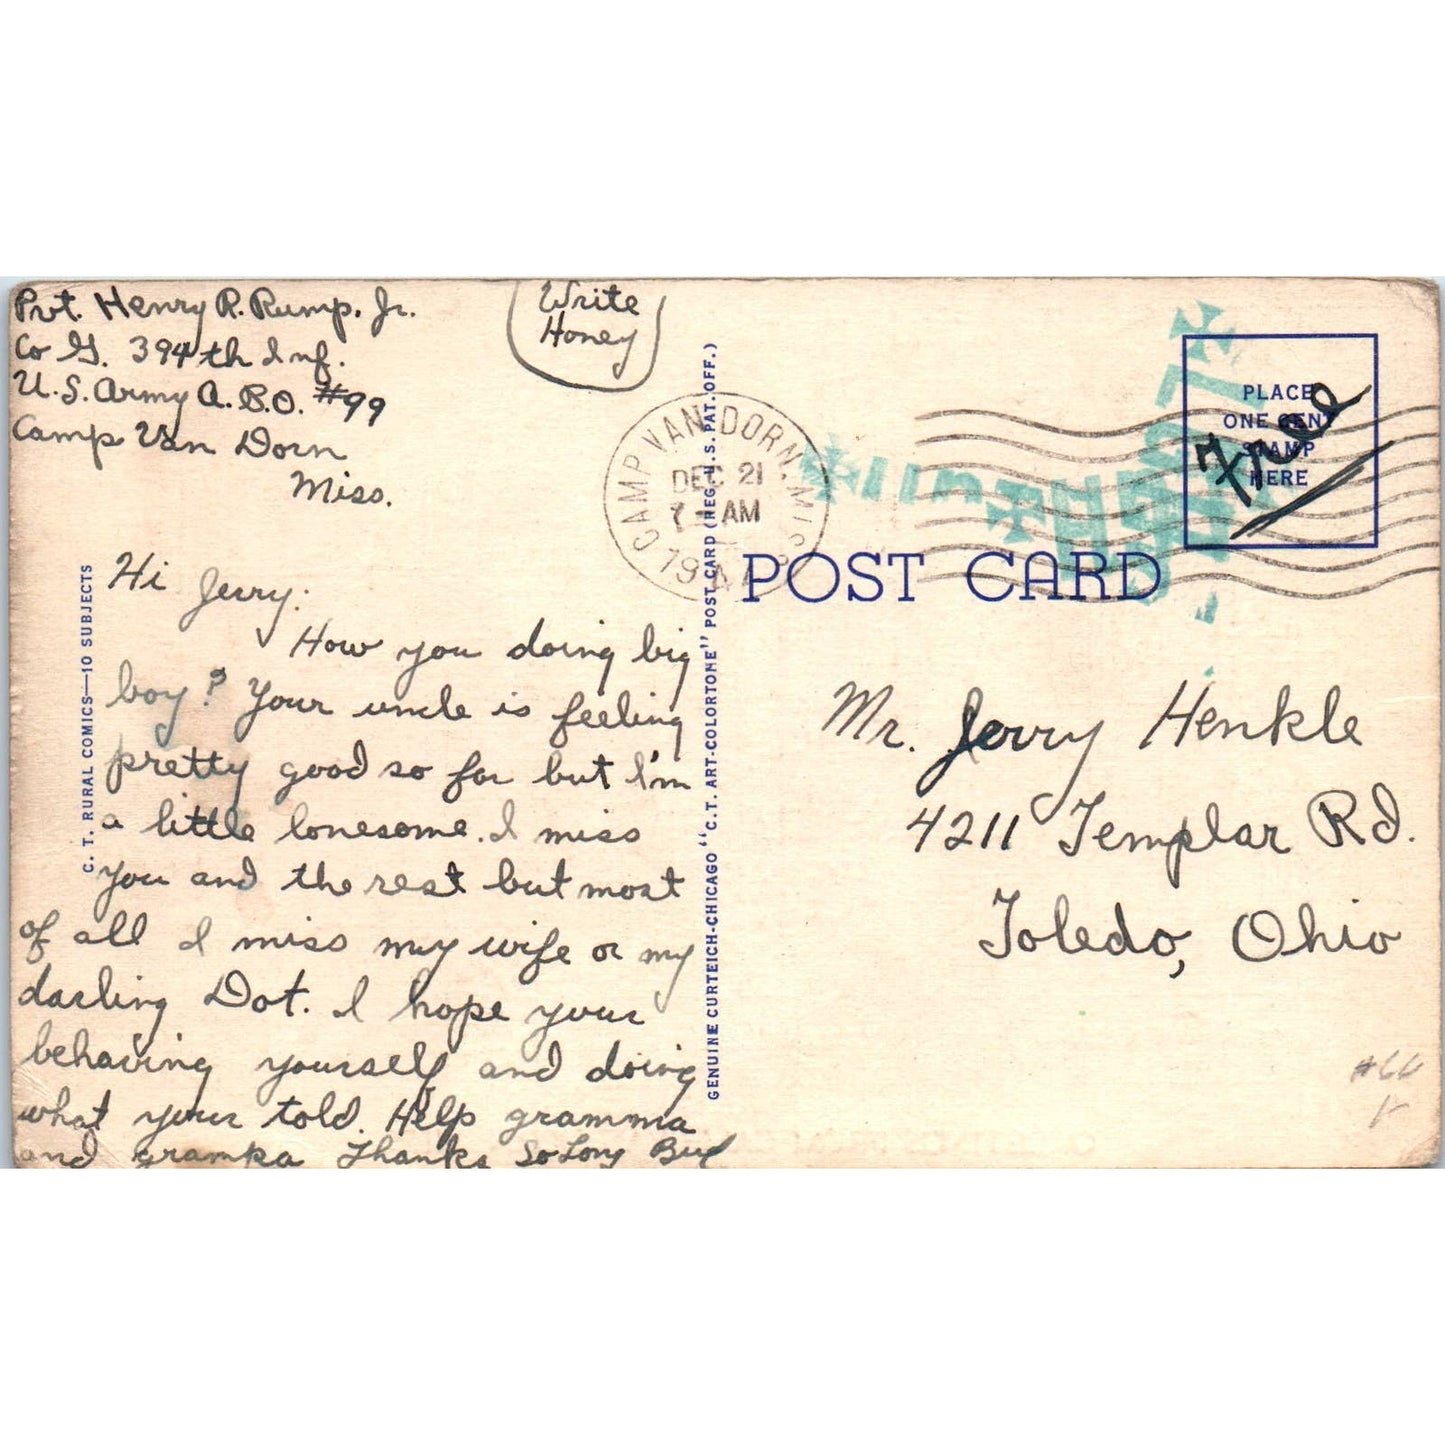 Pvt. Henry R. Rump, Jr.
Co G. 394th Inf.
U.S. Army A.P.O. #99
Camp Van Dorn
Miss.
Write
Honey
Hi Jerry:
How you doing big
boy? Your uncle is feeling
pretty good so far but I'm
a little lonesome. I miss
you and the rest but most
of all I miss my wife or my
darling Dot. I hope your
behaving yourself and doing
what your told. Help gramma
and grampa Thanks So Long Bud
C. T. RURAL COMICS—10 SUBJECTS
GENUINE CURTEICH-CHICAGO "C.T. ART-COLORTONE" POST CARD (REG. U.S. PAT. OFF.)
CAMP VAN DORN, MISS
DEC 21
7 — AM
POST CARD
PLACE
ONE CENT
STAMP
HERE
Free
Mr. Jerry Henkle
4211 Templar Rd.
Toledo, Ohio
#66